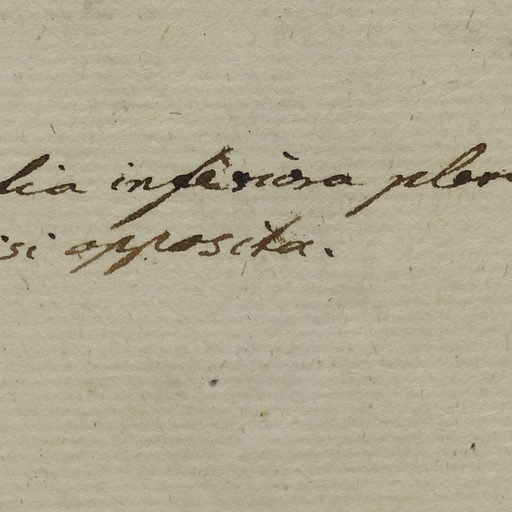 lia inferiora pler
isi opposita.